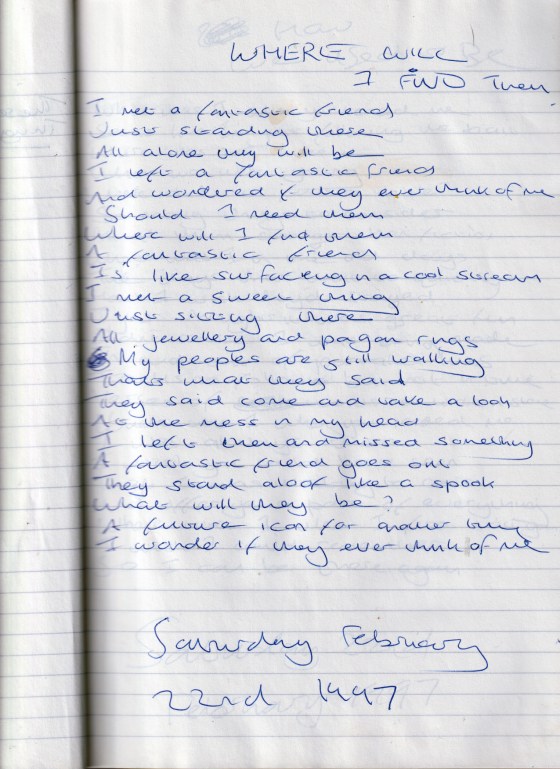 WHERE WILL
I FIND Them
I met a fantastic friend
Just standing there
All alone they will be
I left a fantastic friend
And wondered if they ever think of me
Should I need them
Where will I find them
A fantastic friend
Is like surfacing in a cool stream
I met a sweet thing
Just sitting there
All jewellery and pagan rings
My peoples are still walking
Thats what they said
They said come and take a look
At the mess in my head
I left them and missed something
A fantastic friend goes out
They stand aloof like a spook
What will they be?
A future icon for another
I wonder if they ever think of me
Saturday February
22nd 1997